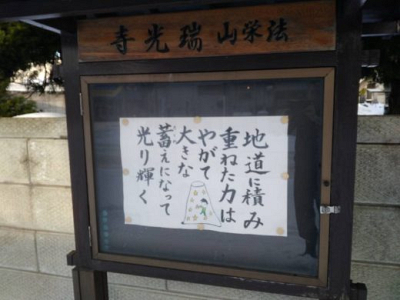 法栄山瑞光寺
地道に積み
重ねた力は
やがて
大きな
蓄えになって
光り輝く